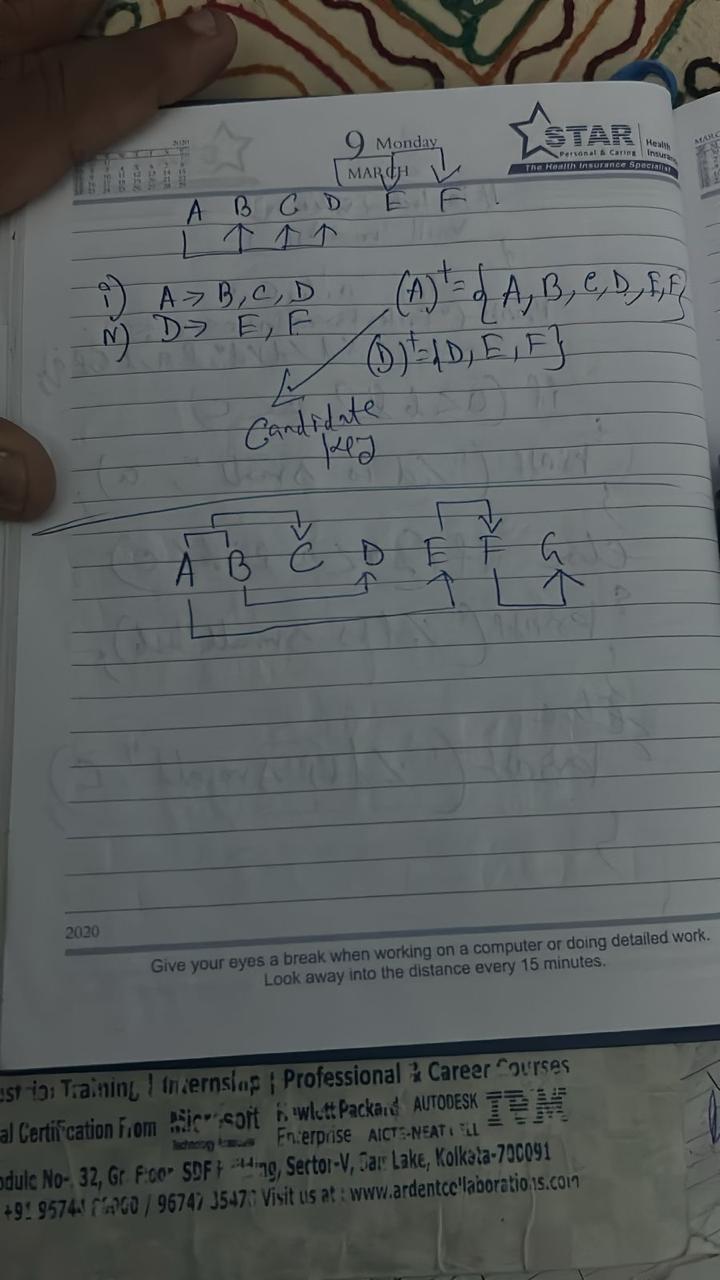 9 Monday
MARCH
2020
STAR
Health
Insurance
Personal & Caring
The Health Insurance Specialist
A B C D E F
i) A → B, C, D
(A)⁺ = { A, B, C, D, E, F}
D → E, F
(D)⁺ = {D, E, F}
Candidate
key
A B C D E F G
2020
Give your eyes a break when working on a computer or doing detailed work.
Look away into the distance every 15 minutes.
Training | Internship | Professional & Career Courses
al Certification From Microsoft Hewlett Packard Enterprise AUTODESK IBM
Technology Associate AICTE-NEAT CELL
odule No-, 32, Gr. Floor SDF Building, Sector-V, Salt Lake, Kolkata-700091
Visit us at : www.ardentcollaborations.com